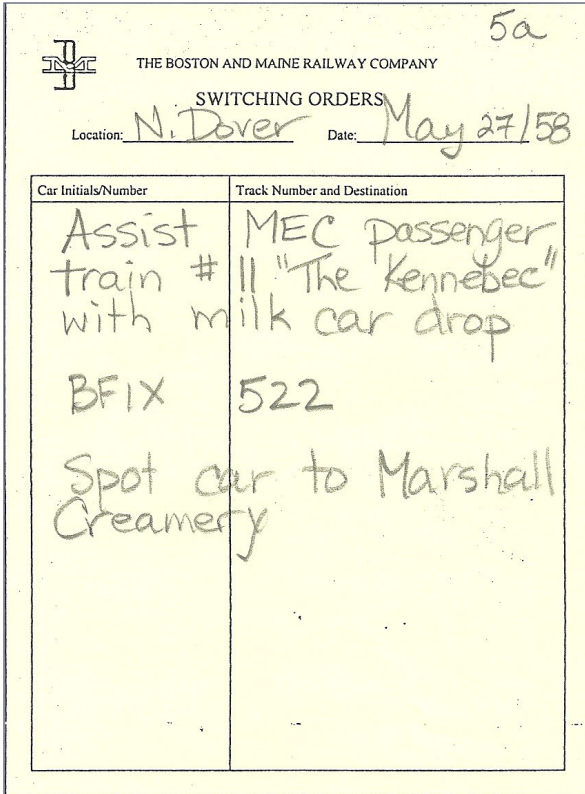 5a
THE BOSTON AND MAINE RAILWAY COMPANY
SWITCHING ORDERS
Location: N. Dover Date: May 27/58
Car Initials/Number Track Number and Destination
Assist MEC passenger
train # 11 "The Kennebec"
with milk car drop
BFIX 522
Spot car to Marshall
Creamery